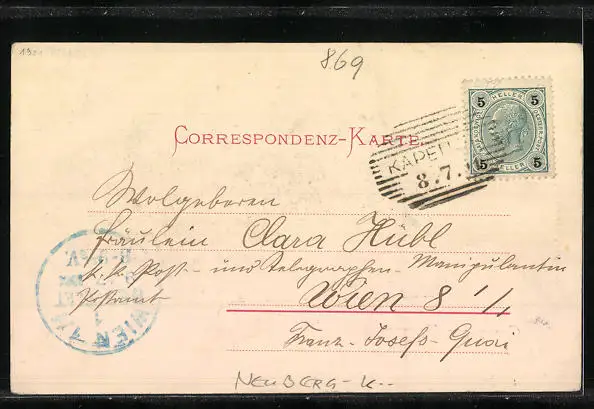 1901
869
CORRESPONDENZ-KARTE.
5 HELLER 5
5 HELLER 5
KAPELLEN
8.7.
Wolgeboren
Fräulein Clara Hübl
k. k. Post- und Telegraphen-Manipulantin
Postamt Wien 8/1
Franz-Josefs-Quai
WIEN
BESTELLT
NEUBERG-K--